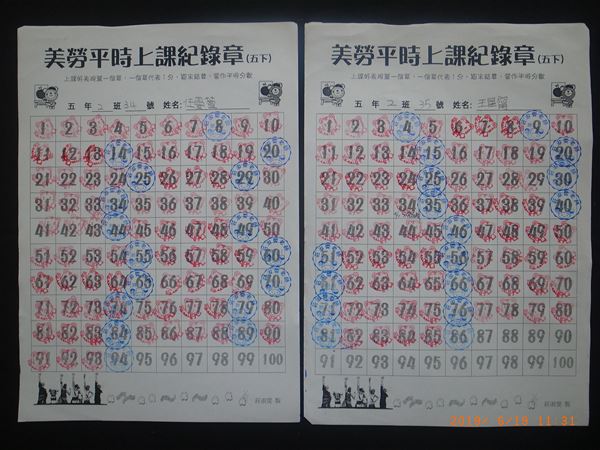 美勞平時上課紀錄章(五下)
五 年 2 班 34 號 姓名:
1 2 3 4 5 6 7 8 9 10
11 12 13 14 15 16 17 18 19 20
21 22 23 24 25 26 27 28 29 30
31 32 33 34 35 36 37 38 39 40
41 42 43 44 45 46 47 48 49 50
51 52 53 54 55 56 57 58 59 60
61 62 63 64 65 66 67 68 69 70
71 72 73 74 75 76 77 78 79 80
81 82 83 84 85 86 87 88 89 90
91 92 93 94 95 96 97 98 99 100
美勞平時上課紀錄章(五下)
五 年 2 班 35 號 姓名:
1 2 3 4 5 6 7 8 9 10
11 12 13 14 15 16 17 18 19 20
21 22 23 24 25 26 27 28 29 30
31 32 33 34 35 36 37 38 39 40
41 42 43 44 45 46 47 48 49 50
51 52 53 54 55 56 57 58 59 60
61 62 63 64 65 66 67 68 69 70
71 72 73 74 75 76 77 78 79 80
81 82 83 84 85 86 87 88 89 90
91 92 93 94 95 96 97 98 99 100
2019/ 6/19 11:31